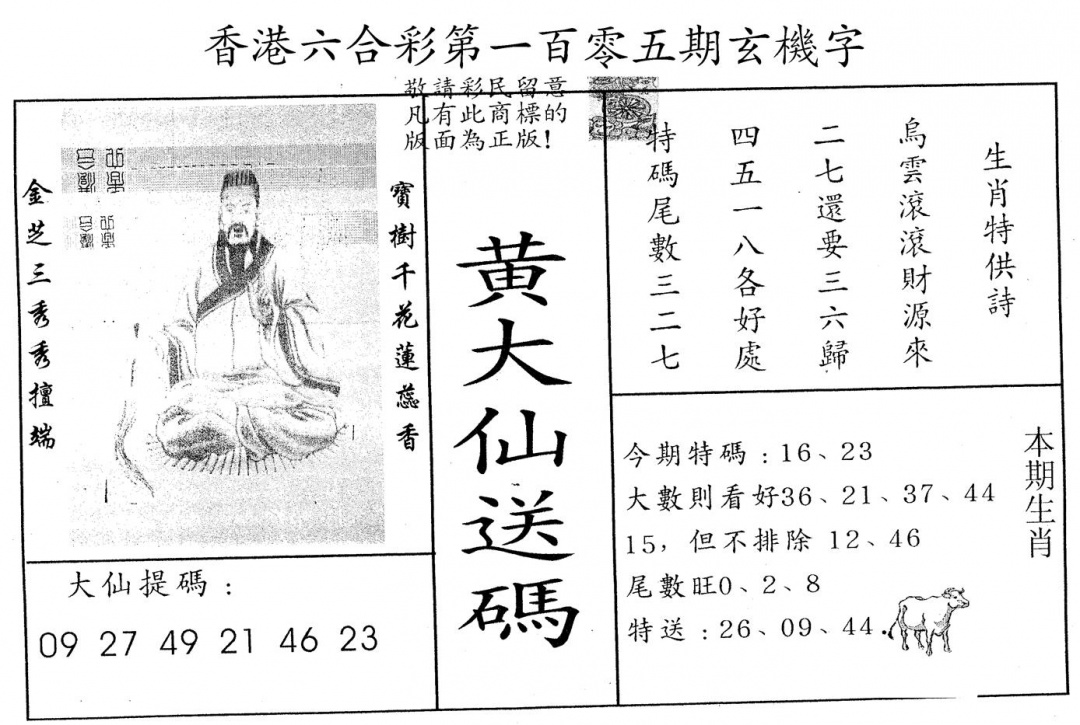 香港六合彩第一百零五期玄機字
敬請彩民留意
凡有此商標的
版面為正版!
寶樹千花蓮蕊香
金芝三秀秀擅端
黃大仙送碼
生肖特供詩
烏雲滾滾財源來
二七還要三六歸
四五一八各好處
特碼尾數三二七
大仙提碼:
09 27 49 21 46 23
本期生肖
今期特碼:16、23
大數則看好36、21、37、44
15,但不排除 12、46
尾數旺0、2、8
特送:26、09、44.